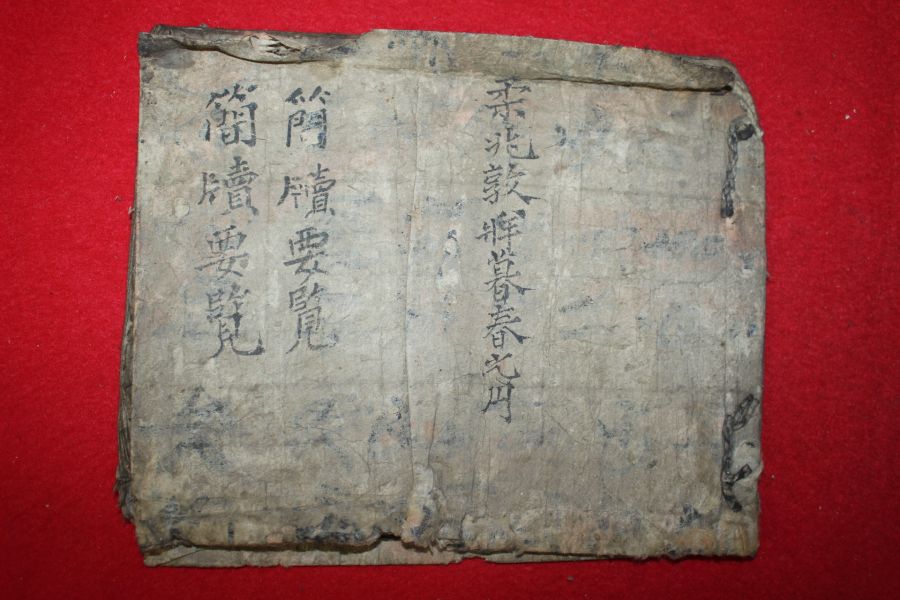 柔兆敦牂暮春之月
簡牘要覽
簡牘要覽